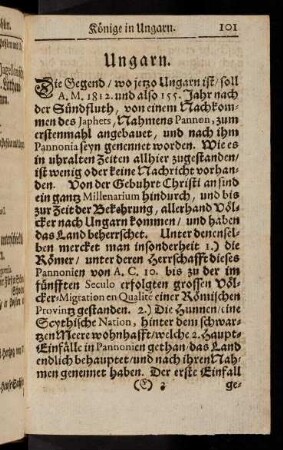 Könige in Ungarn. 101
Ungarn.
Die Gegend / wo jetzo Ungarn ist / soll
A. M. 1812. und also 155. Jahr nach
der Sündfluth, von einem Nachkom-
men des Japhets, Nahmens Pannon, zum
erstenmahl angebauet, und nach ihm
Pannonia seyn genennet worden. Wie es
in uhralten Zeiten allhier zugestanden/
ist wenig oder keine Nachricht vorhan-
den. Von der Gebuhrt Christi an sind
ein gantz Millenarium hindurch, und bis
zur Zeit der Bekehrung, allerhand Völ-
cker nach Ungarn kommen / und haben
das Land beherrschet. Unter denensel-
ben mercket man insonderheit 1.) die
Römer / unter deren Herrschafft dieses
Pannonien von A. C. 10. bis zu der im
fünfften Seculo erfolgten grossen Völ-
cker-Migration en Qualité einer Römischen
Provintz gestanden. 2.) Die Hunnen / eine
Scythische Nation, hinter dem schwar-
tzen Meere wohnhafft / welche 2. Haupt-
Einfälle in Pannonien gethan / das Land
endlich behauptet / und nach ihren Nah-
men genennet haben. Der erste Einfall
ge-